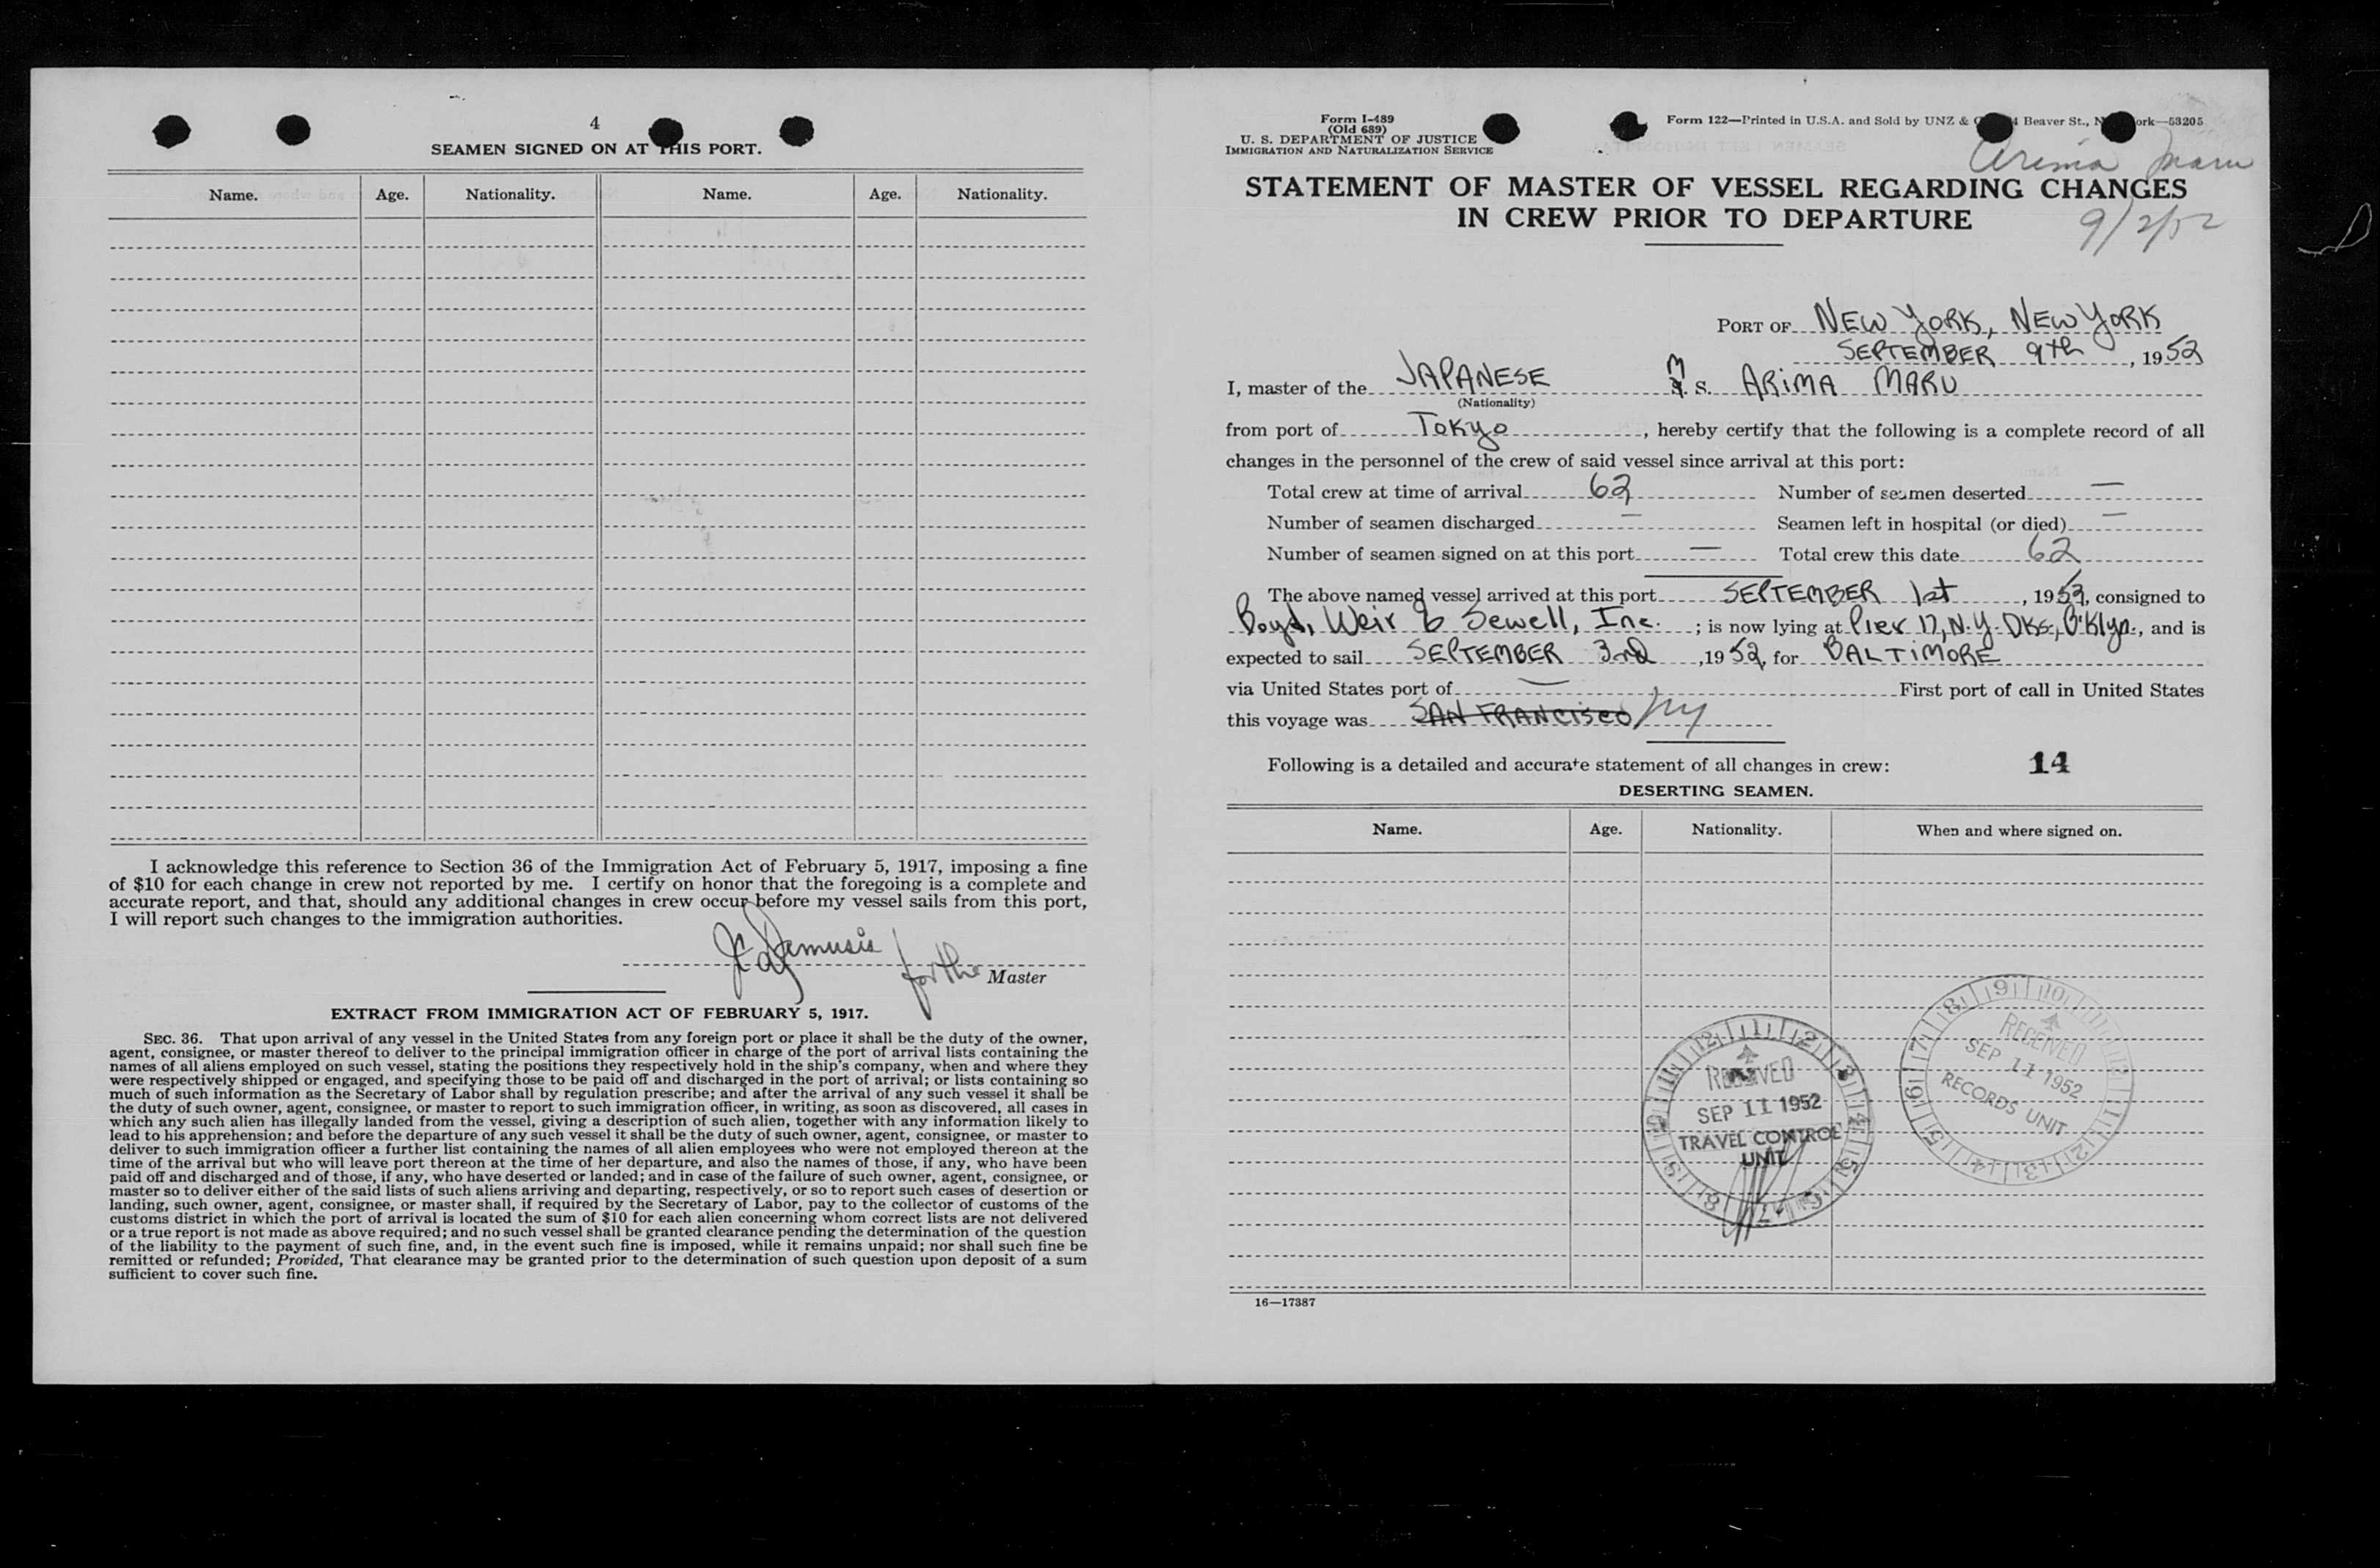 4
SEAMEN SIGNED ON AT THIS PORT.
Name. Age. Nationality. Name. Age. Nationality.
I acknowledge this reference to Section 36 of the Immigration Act of February 5, 1917, imposing a fine
of $10 for each change in crew not reported by me. I certify on honor that the foregoing is a complete and
accurate report, and that, should any additional changes in crew occur before my vessel sails from this port,
I will report such changes to the immigration authorities.
for the Master
EXTRACT FROM IMMIGRATION ACT OF FEBRUARY 5, 1917.
SEC. 36. That upon arrival of any vessel in the United States from any foreign port or place it shall be the duty of the owner,
agent, consignee, or master thereof to deliver to the principal immigration officer in charge of the port of arrival lists containing the
names of all aliens employed on such vessel, stating the positions they respectively hold in the ship's company, when and where they
were respectively shipped or engaged, and specifying those to be paid off and discharged in the port of arrival; or lists containing so
much of such information as the Secretary of Labor shall by regulation prescribe; and after the arrival of any such vessel it shall be
the duty of such owner, agent, consignee, or master to report to such immigration officer, in writing, as soon as discovered, all cases in
which any such alien has illegally landed from the vessel, giving a description of such alien, together with any information likely to
lead to his apprehension; and before the departure of any such vessel it shall be the duty of such owner, agent, consignee, or master to
deliver to such immigration officer a further list containing the names of all alien employees who were not employed thereon at the
time of the arrival but who will leave port thereon at the time of her departure, and also the names of those, if any, who have been
paid off and discharged and of those, if any, who have deserted or landed; and in case of the failure of such owner, agent, consignee, or
master so to deliver either of the said lists of such aliens arriving and departing, respectively, or so to report such cases of desertion or
landing, such owner, agent, consignee, or master shall, if required by the Secretary of Labor, pay to the collector of customs of the
customs district in which the port of arrival is located the sum of $10 for each alien concerning whom correct lists are not delivered
or a true report is not made as above required; and no such vessel shall be granted clearance pending the determination of the question
of the liability to the payment of such fine, and, in the event such fine is imposed, while it remains unpaid; nor shall such fine be
remitted or refunded; Provided, That clearance may be granted prior to the determination of such question upon deposit of a sum
sufficient to cover such fine.
Form I-489
(Old 689)
U. S. DEPARTMENT OF JUSTICE
IMMIGRATION AND NATURALIZATION SERVICE
Form 122—Printed in U.S.A. and Sold by UNZ & Beaver St., ork—53205
Arima Maru
STATEMENT OF MASTER OF VESSEL REGARDING CHANGES
IN CREW PRIOR TO DEPARTURE
9/2/52
PORT OF NEW YORK, NEW YORK
SEPTEMBER 9th, 1952
I, master of the JAPANESE M. S. ARIMA MARU
(Nationality)
from port of Tokyo, hereby certify that the following is a complete record of all
changes in the personnel of the crew of said vessel since arrival at this port:
Total crew at time of arrival 62 Number of seamen deserted —
Number of seamen discharged — Seamen left in hospital (or died) —
Number of seamen signed on at this port — Total crew this date 62
The above named vessel arrived at this port SEPTEMBER 1st, 1952, consigned to
Boyd, Weir & Sewell, Inc.; is now lying at Pier 17, N.Y. Dks., B'klyn., and is
expected to sail SEPTEMBER 3rd, 1952, for BALTIMORE
via United States port of — First port of call in United States
this voyage was SAN FRANCISCO NY
Following is a detailed and accurate statement of all changes in crew:
14
DESERTING SEAMEN.
Name. Age. Nationality. When and where signed on.
RECEIVED
SEP 11 1952
TRAVEL CONTROL
UNIT
RECEIVED
SEP 11 1952
RECORDS UNIT
16—17387